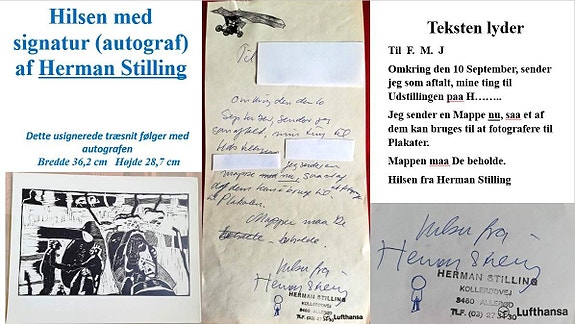 Hilsen med
signatur (autograf)
af Herman Stilling
Dette usignerede træsnit følger med
autografen
Bredde 36,2 cm   Højde 28,7 cm
Til
Omkring den den 10
September, sender jeg
som aftalt, mine ting til
Udstillingen
Jeg sender en
mappe med nu, saa et af
af dem kan bruges til at fotografere
til Plakater.
Mappen maa De
beholde.
Hilsen fra
Herman Stilling
HERMAN STILLING
KOLLERØDVEJ
3450 ALLERØD
TLF. (03) 27
Lufthansa
Teksten lyder
Til  F.  M.  J
Omkring den 10 September, sender
jeg som aftalt, mine ting til
Udstillingen paa H……..
Jeg sender en Mappe nu, saa et af
dem kan bruges til at fotografere til
Plakater.
Mappen maa De beholde.
Hilsen fra Herman Stilling
Hilsen fra
Herman Stilling
HERMAN STILLING
KOLLERØDVEJ
3450 ALLERØD
TLF. (03) 27
Lufthansa